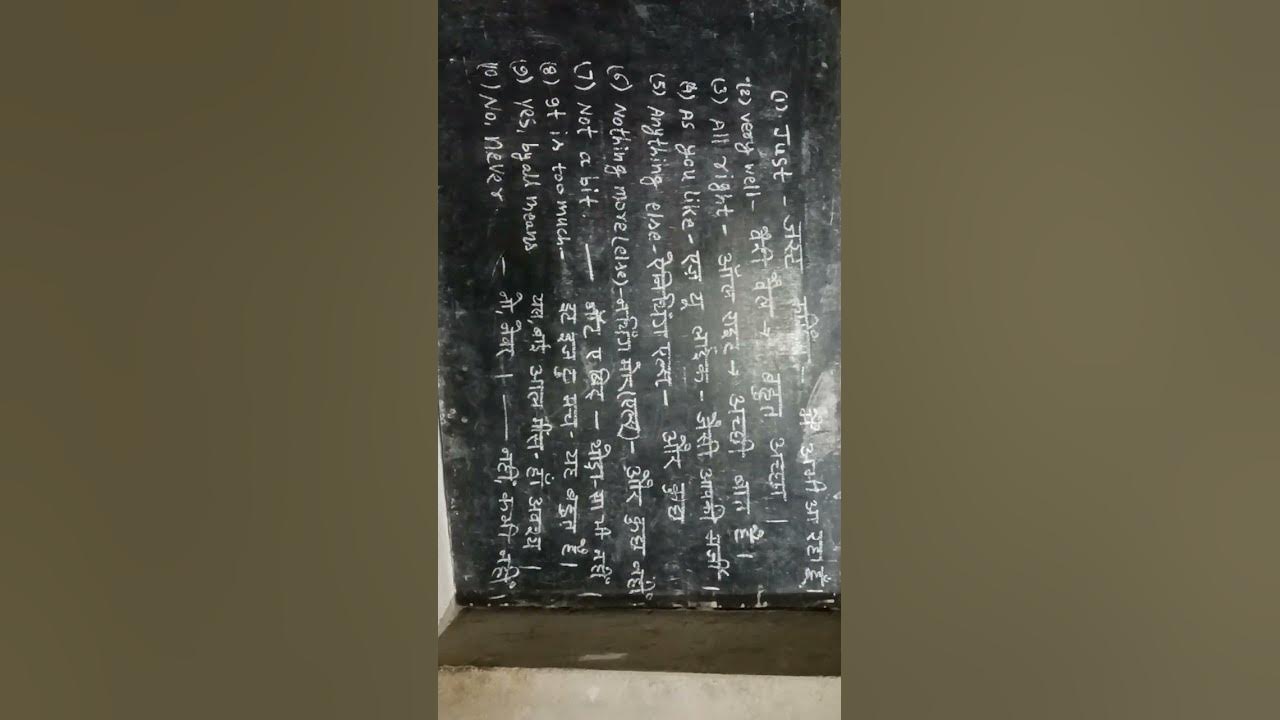 (1) Just - जस्ट कमिंग - मैं अभी आ रहा हूँ।
(2) very well - वैरी वैल → बहुत अच्छा।
(3) All right - ऑल राइट → अच्छी बात है।
(4) As you like - एज़ यू लाइक - जैसी आपकी मर्जी।
(5) Anything else - ऐनिथिंग एल्स - और कुछ
(6) Nothing more (else) - नथिंग मोर (एल्स) - और कुछ नहीं
(7) Not a bit. — नॉट ए बिट - थोड़ा-सा भी नहीं।
(8) It is too much - इट इज टु मच - यह बहुत है।
(9) Yes, by all means यस, बाई आल मीन्स - हाँ अवश्य।
(10) No, never - नो, नेवर। — नहीं, कभी नहीं।